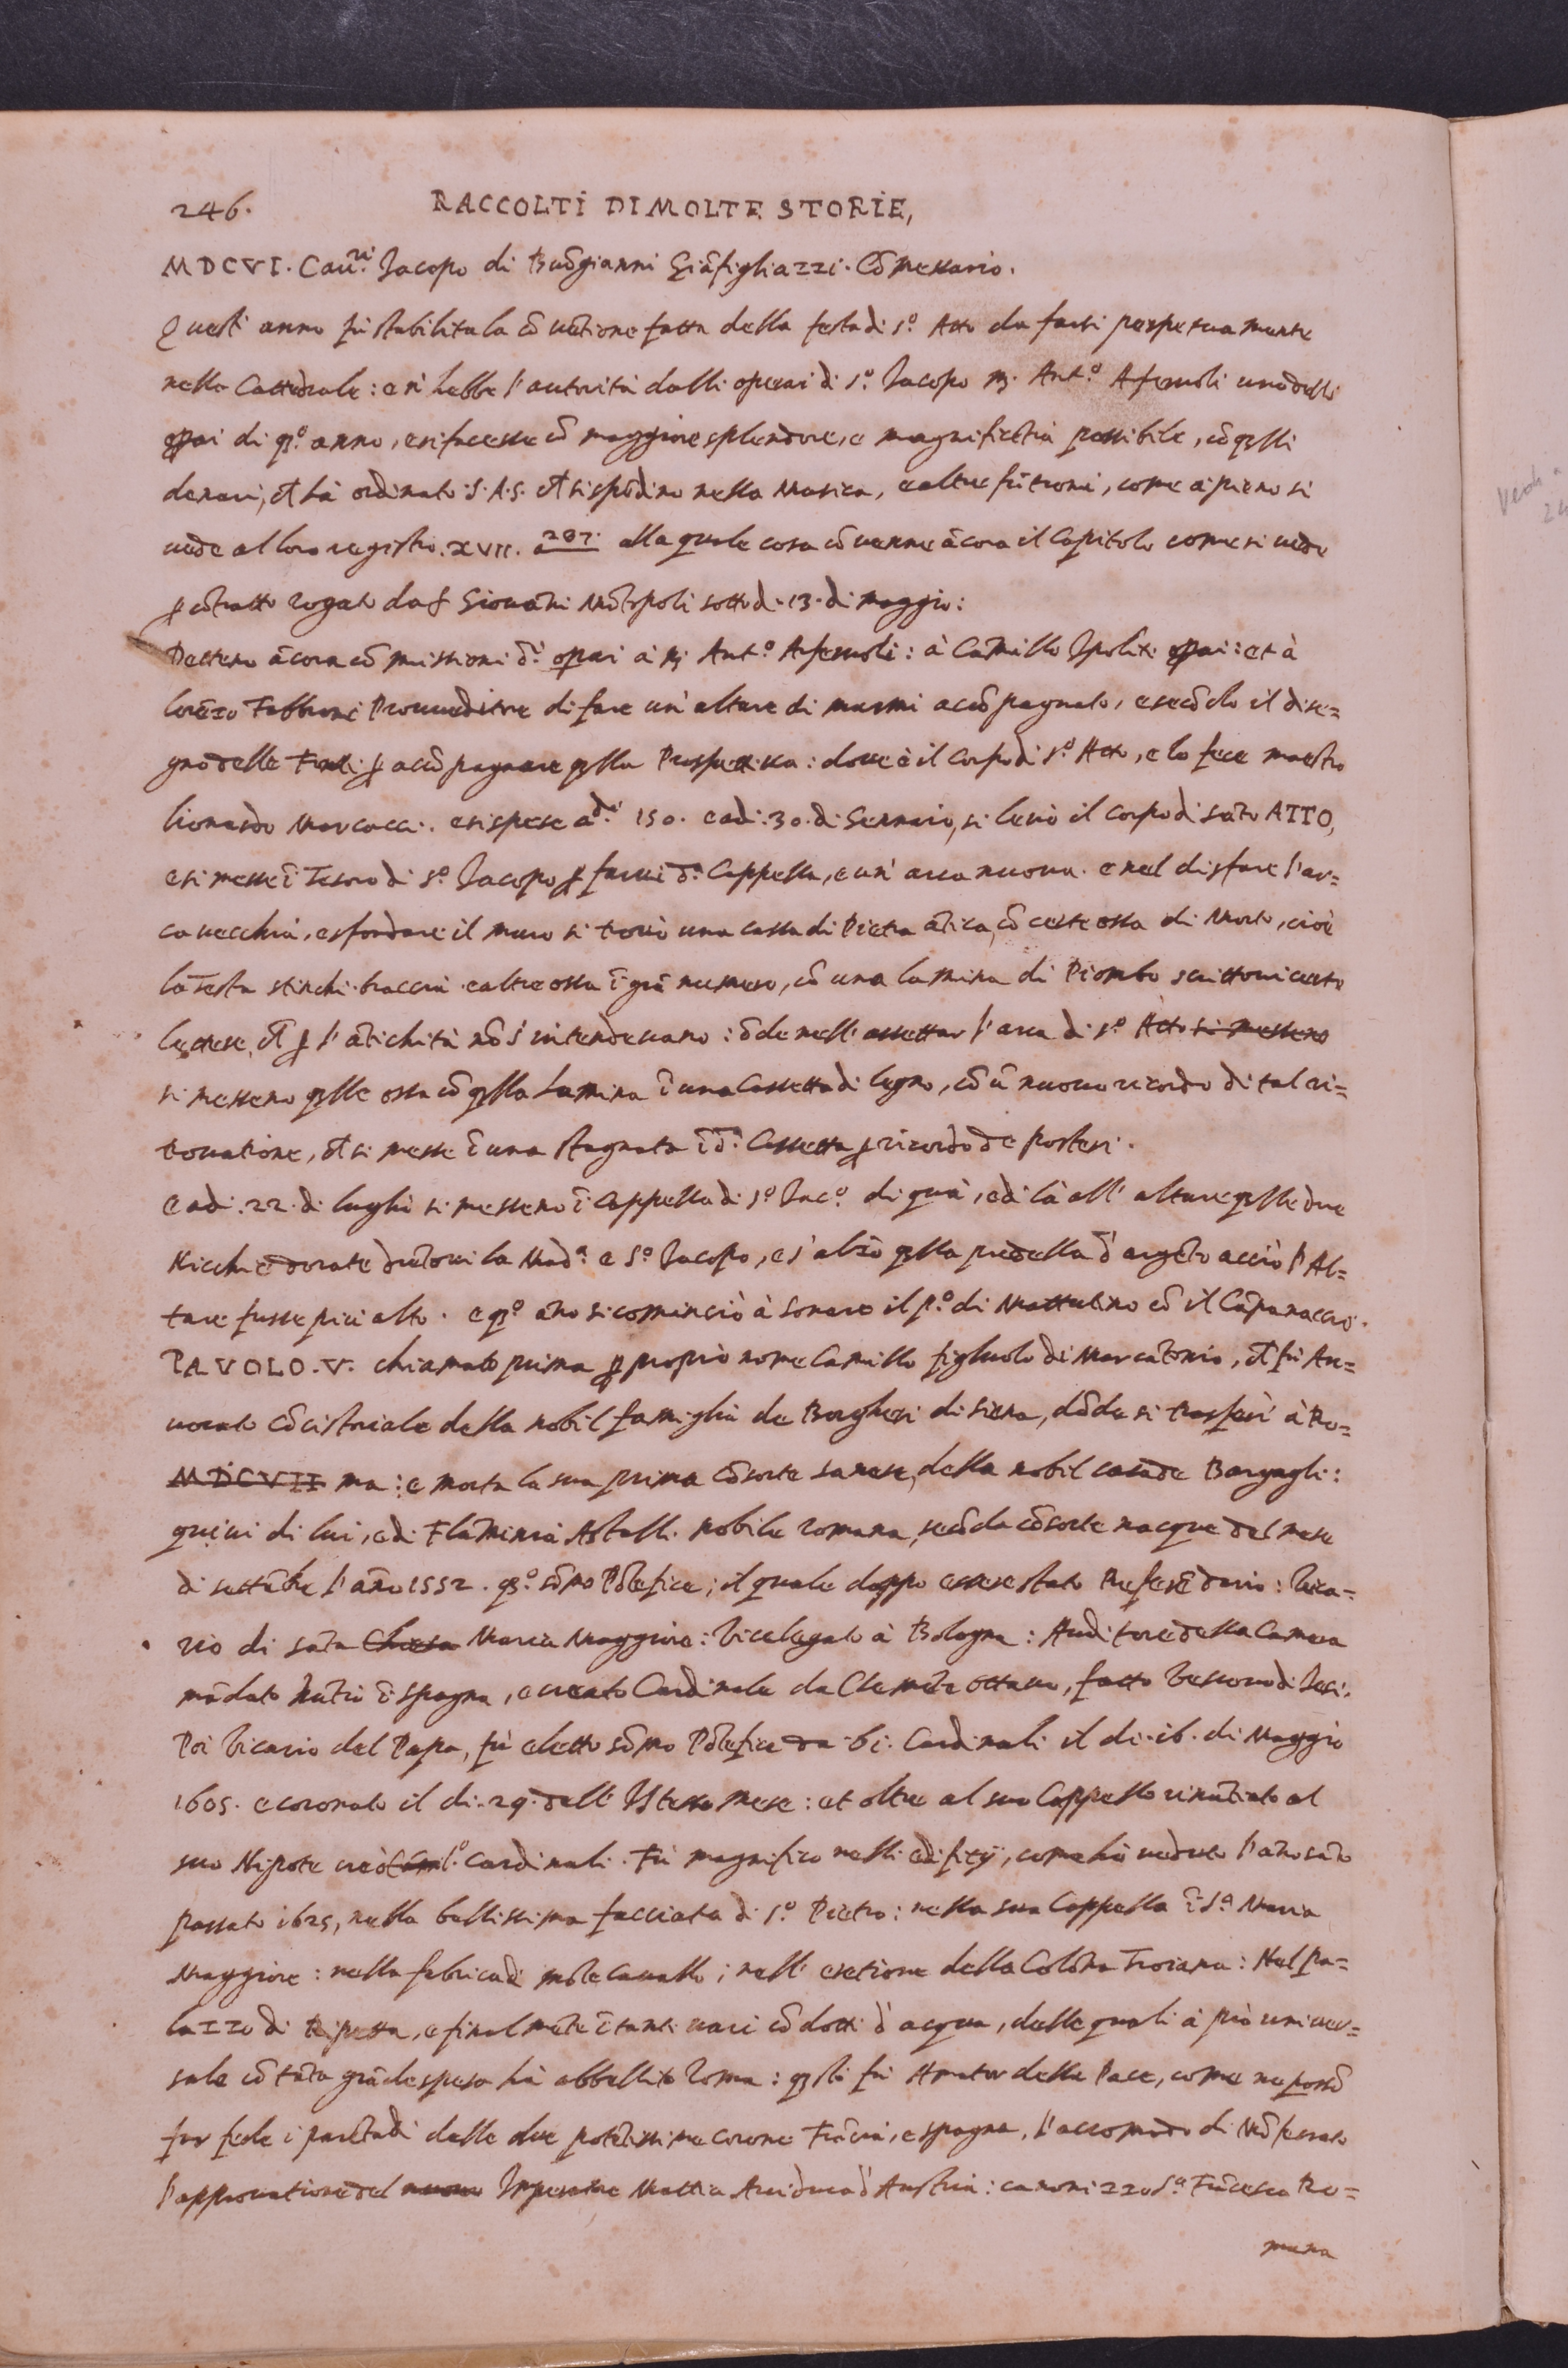 246. RACCOLTI DI MOLTE STORIE,
MDCVI. Cau.ri Jacopo di Buõgianni Giãfigliazzi. Cõmessario.
Quest' anno fù stabilita la cõuẽtione fatta della festa di s.o Atto da farsi perpetuamente
nella Cattedrale: e si hebbe l'autorità dalli operai di s.o Jacopo m. Ant.o Aferuoli uno delli
opai di qsto. anno, e si facesse cõ maggiore splendore, e magnificẽtia possibile, cõ qlli
denari, ch hà ordinato S.A.S. ch si spẽdino nella Musica, e altre fũtioni, come à pieno si
uede al loro registro. XVII. a 207. alla quale cosa cõuenne ãcora il Capitolo come si uede
p cõtratto rogato da s. Giouãni Mõtopoli sotto dì. 13. di maggio:
Dettero ãcora cõmissioni d.i opai à m. Ant.o Aferuoli: à Camillo Ipoliti opai: et à
Lorẽzo Fabbroni Proueditore di fare un' altare di marmi acõpagnato, e secõdo il dise=
gno delle p acõpagnare qlla Prospettiua: doue è il Corpo di s.o Atto, e lo fece maestro
Lionardo Marcacci. e si spese d.i 150. e adì. 30. di Gennaio, si leuò il corpo di sãto ATTO,
e si messe ĩ Tesoro di s.o Jacopo p farui d.a Cappella, e un' arca nuoua. e nel disfare l'ar=
ca uecchia, e sfondare il muro si trouò una cassa di Pietra ãtica, cõ certe ossa di Morto, cioè
la Testa stinchi. braccia e altre ossa ĩ grã numero, cõ una lamina di Piombo scrittoui certe
lettere, ch p l'ãtichità nõ s'intendeuano: õde nell' assettar l'arca di s.o Atto si messero
si messero qlle ossa cõ qlla Lamina ĩ una Cassetta di legno, cõ ũ nuouo ricordo di tal ri=
trouatione, ch si messe ĩ una stagnata ĩ d.a Cassetta p ricordo de posteri.
E adì. 22. di luglio si messero ĩ Cappella di s.o Jac.o di quà, e di là all' altare qlle due
Nicchie dorate drẽtoui la Mad.a e S.o Jacopo, e s'alzò qlla predella d'argẽto acciò l'Al=
tare fusse più alto. e qsto. ãno si cominciò à sonare il p.o di Mattutino cõ il Cãpanaccio.
PAVOLO. V. chiamato prima p proprio nome Camillo figliuolo di Marcãtonio, ch fù Au=
uocato Cõcistoriale della nobil famiglia de Borghesi di Siena, dõde si trasferì à Ro=
MDCVII ma: e morta la sua prima cõsorte sanese, della nobil casa de Bargagli:
quiui di lui, e di Flãminia Astalli. nobile romana, secõda cõsorte nacque del mese
di settẽbre l'ãno 1552. qsto. sõmo Põtefice; il quale doppo essere stato Referẽdario: Vica=
rio di sãta Chiesa Maria Maggiore: Vicelegato à Bologna: Auditore della Camera
mãdato Nũtio ĩ Spagna, e creato Cardinale da Clemẽte ottauo, fatto Vescouo di Jesi.
Poi Vicario del Papa, fù eletto sõmo Põtefice da. 61. Cardinali il dì. 16. di Maggio
1605. e coronato il dì. 29. dell' Istesso mese: et oltre al suo Cappello rinũtiato al
suo Nipote creò Cardinali. Fù magnifico nelli edifitij, come hà ueduto l'ãno sãto
passato 1625, nella bellissima facciata di s.o Pietro: nella sua Cappella ĩ S.a Maria
Maggiore: nella fabrica di mõte Cauallo; nell' eretione della Colõna Troiana: Nel pa=
lazzo di Ripetta, e finalmẽte ĩ tanti uari cõdotti d'acqua, delle quali à prò uniuer=
sale cõ tãta grãde spesa hà abbellito Roma: qsti fù Amator della Pace, come ne possõ
far fede i parẽtadi delle due potẽtissime corone Frãcia, e Spagna, l'accomodo di Mõferrato
l'approuatione del nuouo Imperatore Mattia Arciduca d'Austria: canonizzo S.a Frãcesca Ro=
mana